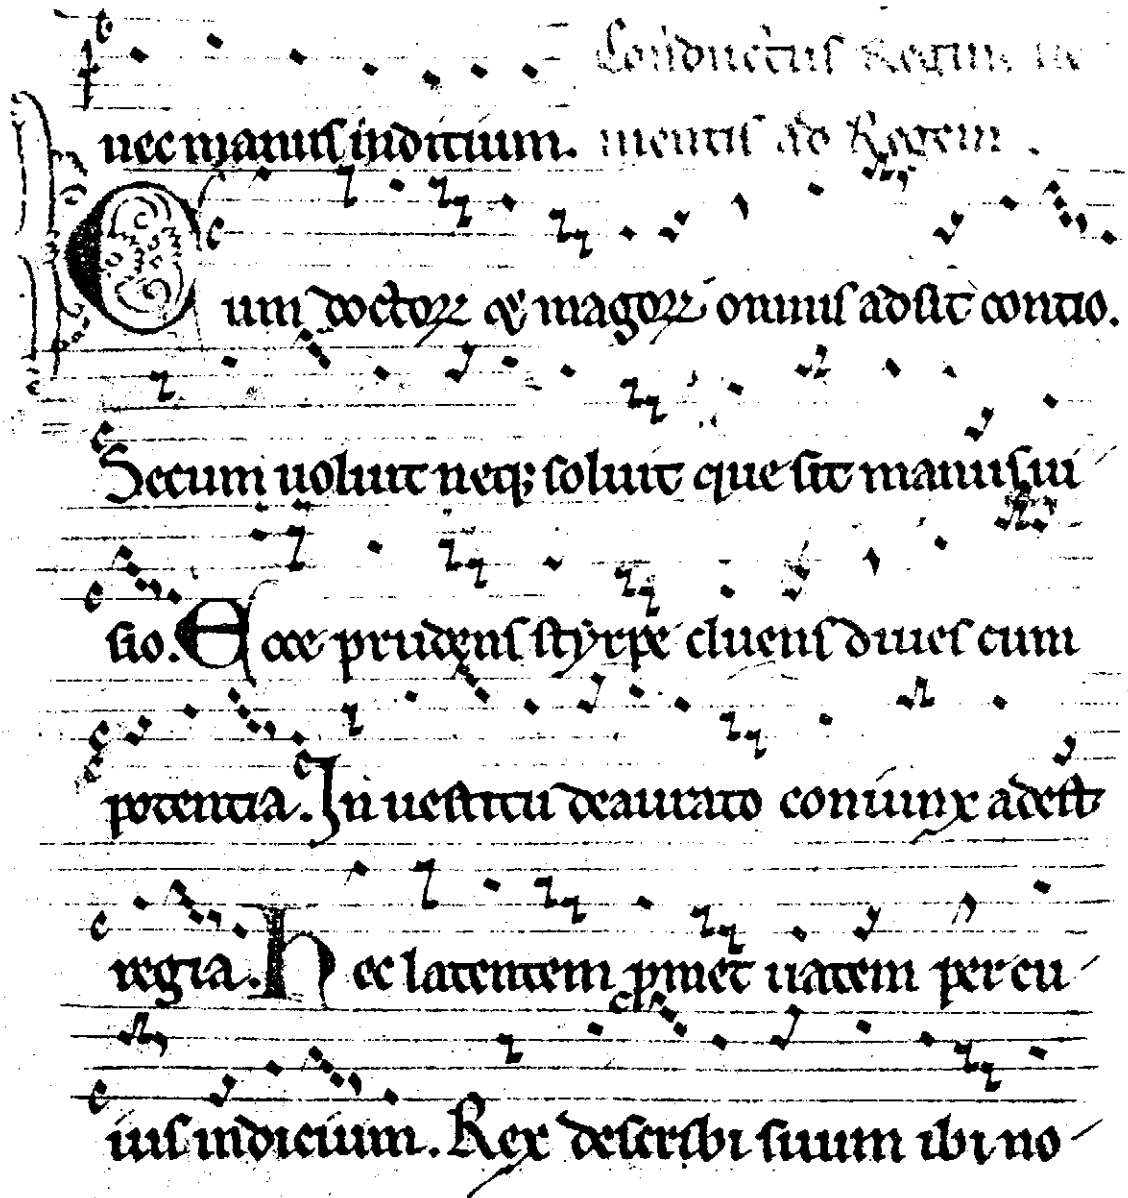 Conductus Regine ue
nec manus inditium. nientis ad Regem.
Cum doctorꝝ & magorꝝ omnis adsit contio.
Secum uoluit neq; soluit que sit manus ui
sio. Ecce prudens styrpe cluens diues cum
potentia. In uestitu deaurato coniunx adest
regia. Hec latentem ꝓmet uatem per cu
ius indicium. Rex describi suum ibi no